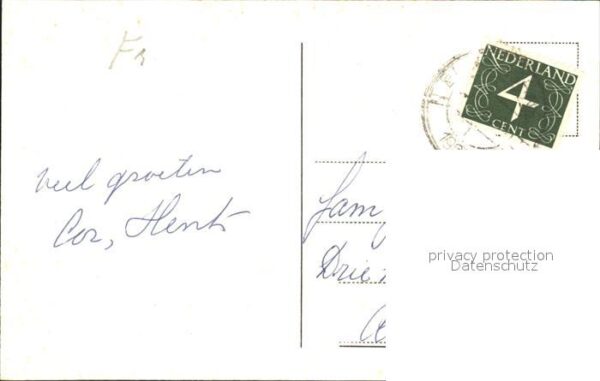 Fr
NEDERLAND
4
CENT
veel groeten
Cor, Henk
Fam
Drie
privacy protection
Datenschutz